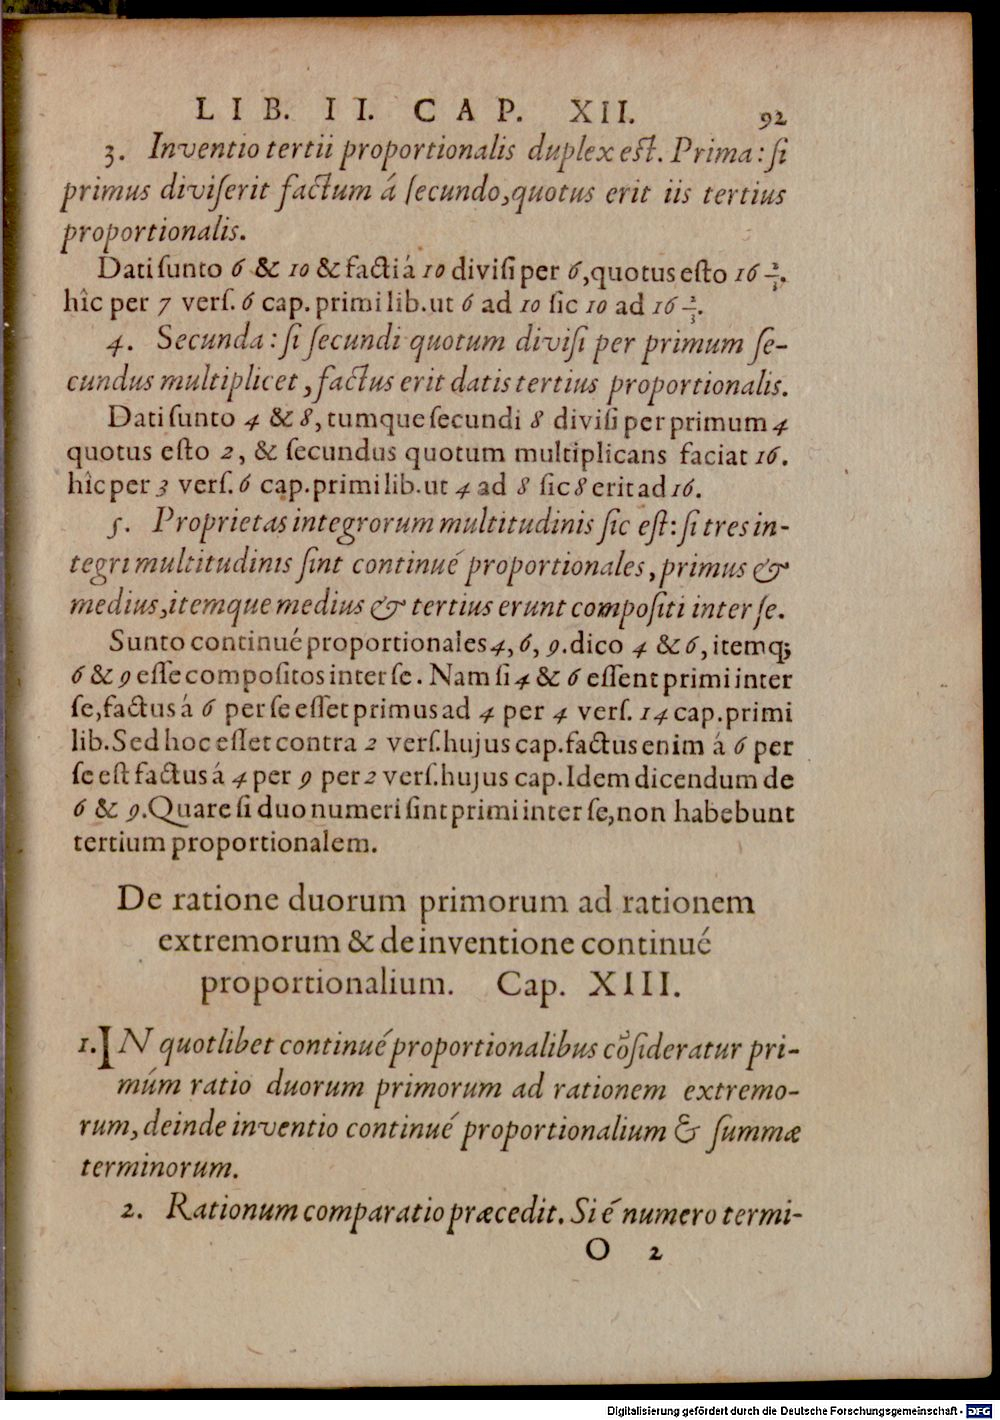 LIB. II. CAP. XII. 92
3. Inventio tertii proportionalis duplex est. Prima: si
primus diviserit factum á secundo, quotus erit iis tertius
proportionalis.
Dati sunto 6 & 10 & facti á 10 divisi per 6, quotus esto 16 2/3.
hîc per 7 vers. 6 cap. primi lib. ut 6 ad 10 sic 10 ad 16 2/3.
4. Secunda: si secundi quotum divisi per primum se-
cundus multiplicet, factus erit datis tertius proportionalis.
Dati sunto 4 & 8, tumque secundi 8 divisi per primum 4
quotus esto 2, & secundus quotum multiplicans faciat 16.
hîc per 3 vers. 6 cap. primi lib. ut 4 ad 8 sic 8 erit ad 16.
5. Proprietas integrorum multitudinis sic est: si tres in-
tegri multitudinis sint continué proportionales, primus &
medius, itemque medius & tertius erunt compositi inter se.
Sunto continué proportionales 4, 6, 9. dico 4 & 6, itemq;
6 & 9 esse compositos inter se. Nam si 4 & 6 essent primi inter
se, factus á 6 per se esset primus ad 4 per 4 vers. 14 cap. primi
lib. Sed hoc esset contra 2 vers. hujus cap. factus enim á 6 per
se est factus á 4 per 9 per 2 vers. hujus cap. Idem dicendum de
6 & 9. Quare si duo numeri sint primi inter se, non habebunt
tertium proportionalem.
De ratione duorum primorum ad rationem
extremorum & de inventione continué
proportionalium. Cap. XIII.
1. IN quotlibet continué proportionalibus cōsideratur pri-
múm ratio duorum primorum ad rationem extremo-
rum, deinde inventio continué proportionalium & summæ
terminorum.
2. Rationum comparatio præcedit. Si é numero termi-
O 2
Digitalisierung gefördert durch die Deutsche Forschungsgemeinschaft - DFG